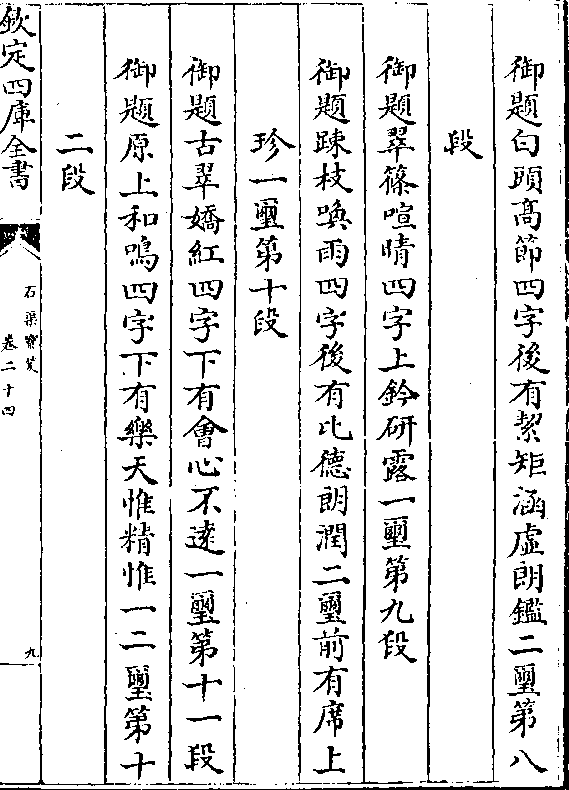 御題白頭高節四字後有絜矩涵虛朗鑑二璽第八
段
御題翠篠喧晴四字上鈐研露一璽第九段
御題踈枝喚雨四字後有比德朗潤二璽前有席上
珍一璽第十段
御題古翠嬌紅四字下有會心不遠一璽第十一段
御題原上和鳴四字下有樂天惟精惟一二璽第十
二段
欽定四庫全書
石渠寶笈
卷二十四
九